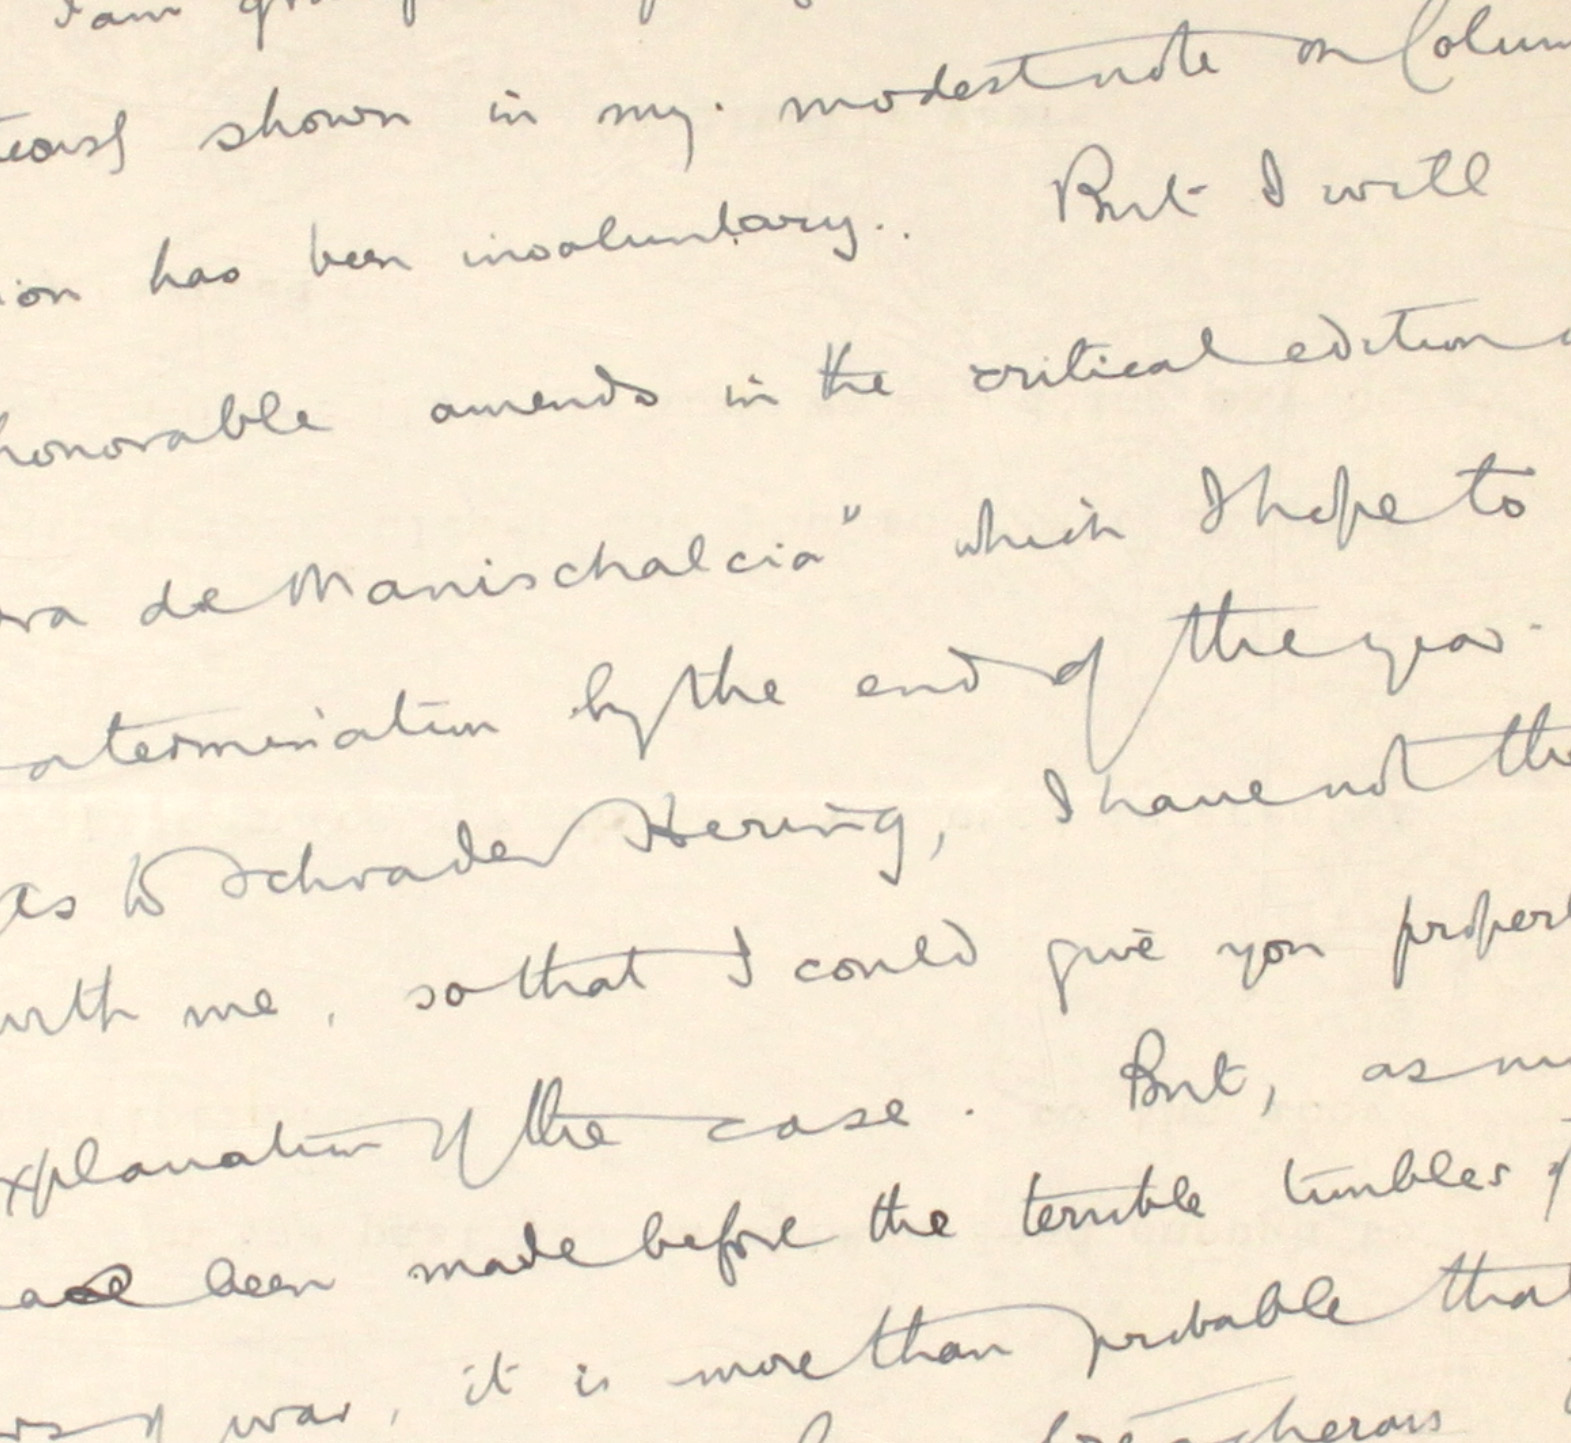 I am
shown in my. modest note on Colum
ion has been involuntary.. But I will
honorable amends in the critical edition
de Manischalcia" which I hope to
a termination by the end of the year.
as to Schrader Hering, I have not the
with me, so that I could give you proper
xplanation of the case. But, as m
been made before the terrible tumbles of
rs of war, it is more than probable that